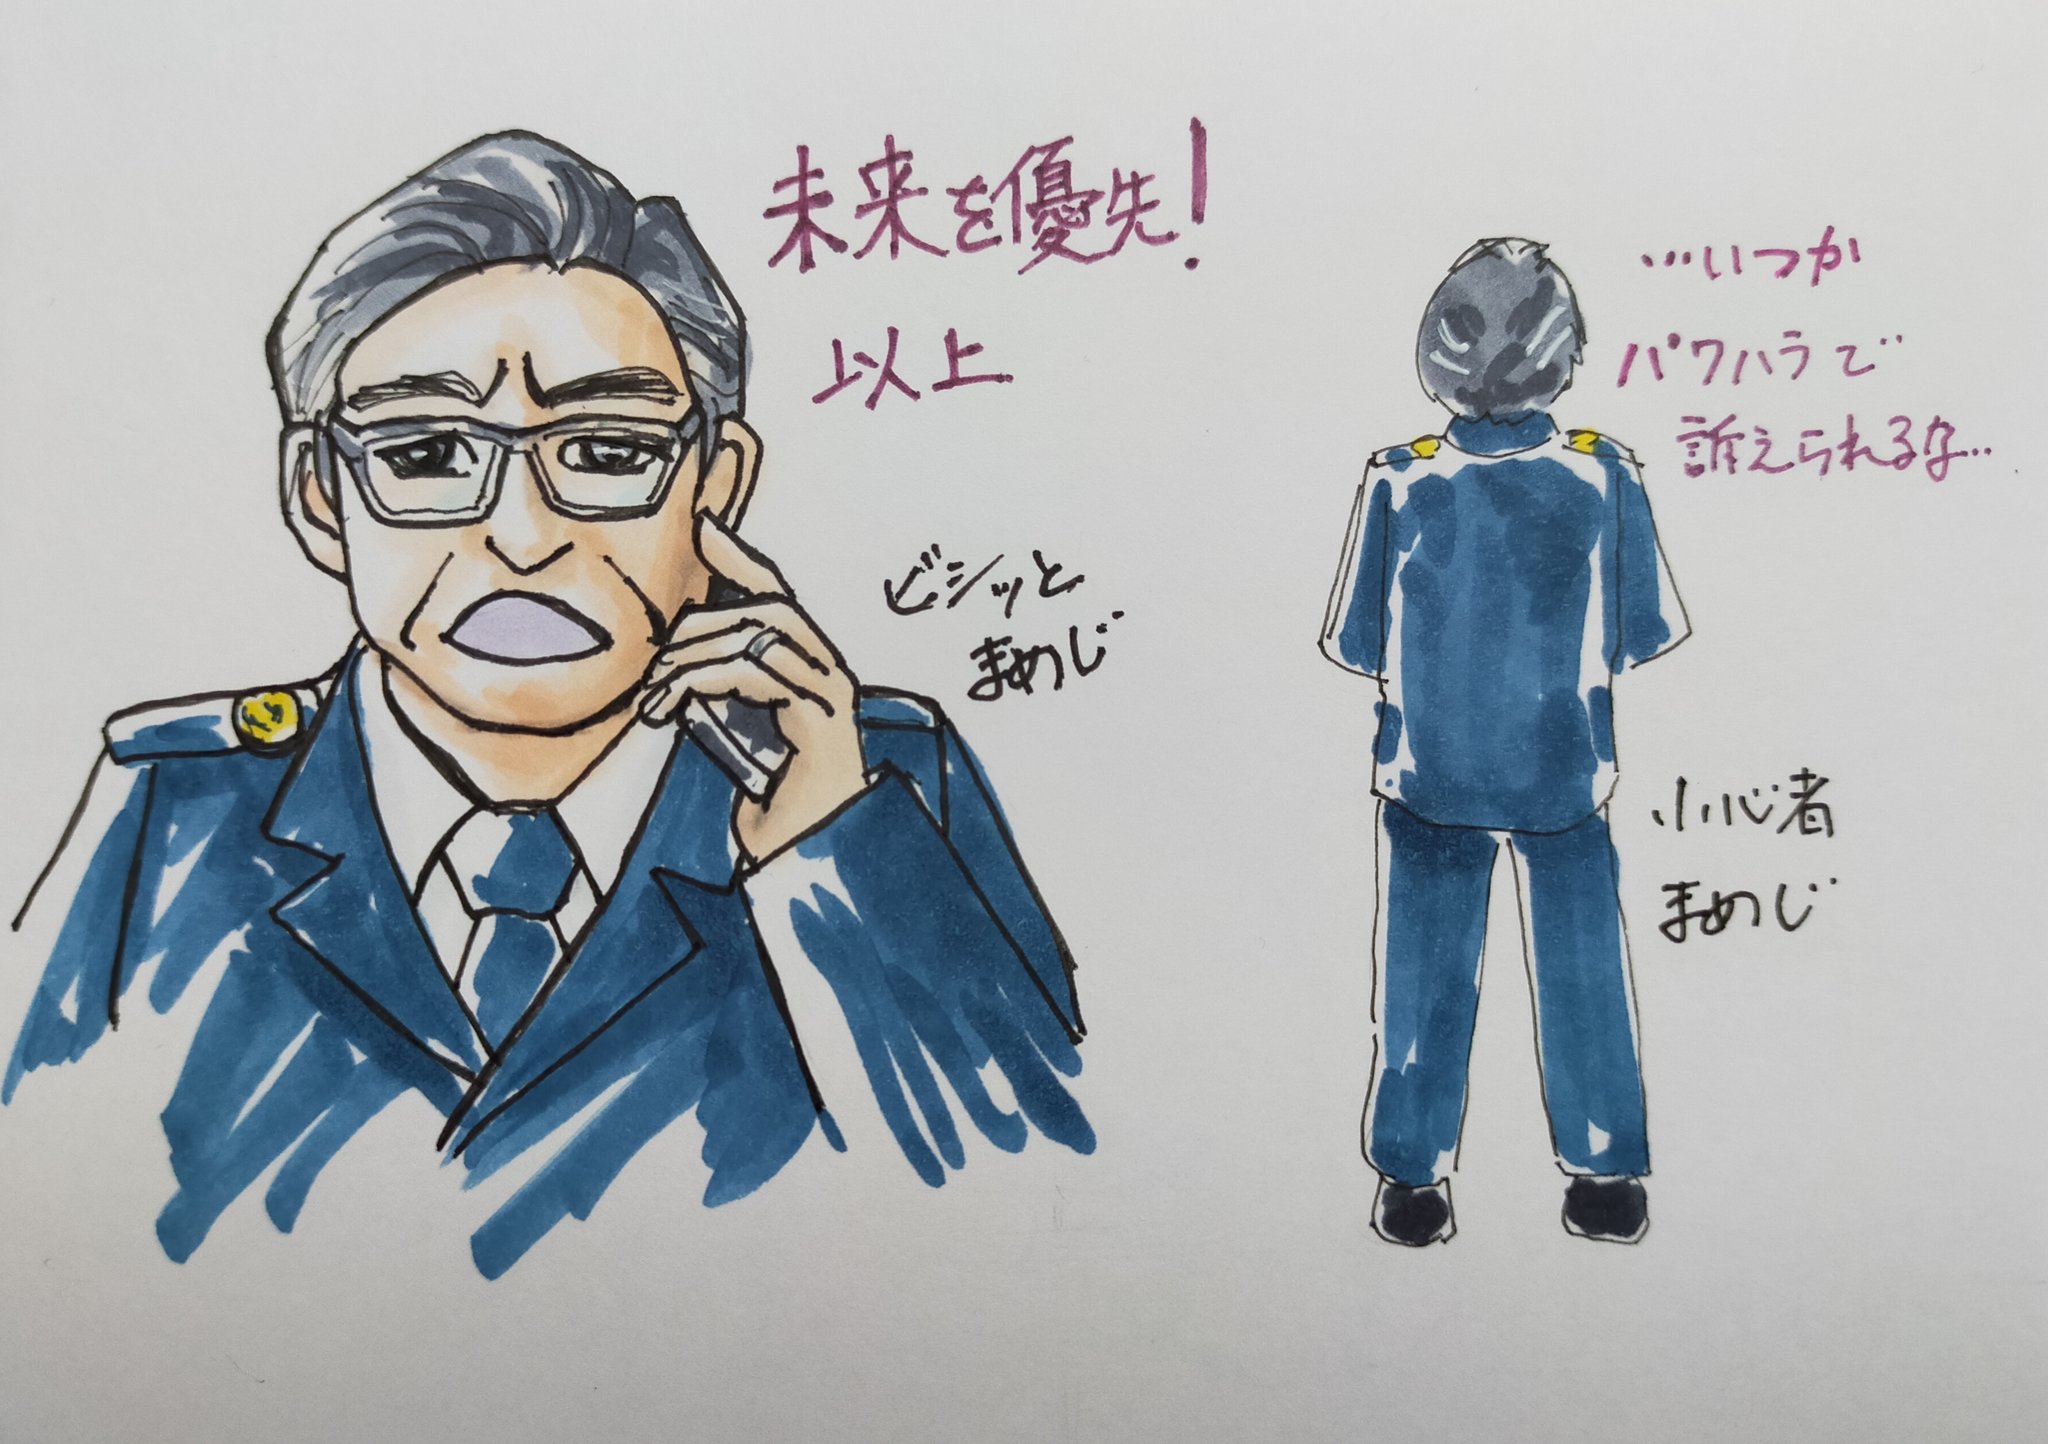 未来を優先!
以上
ビシッと
まめじ
…いつか
パワハラで
訴えられるな…
小心者
まめじ